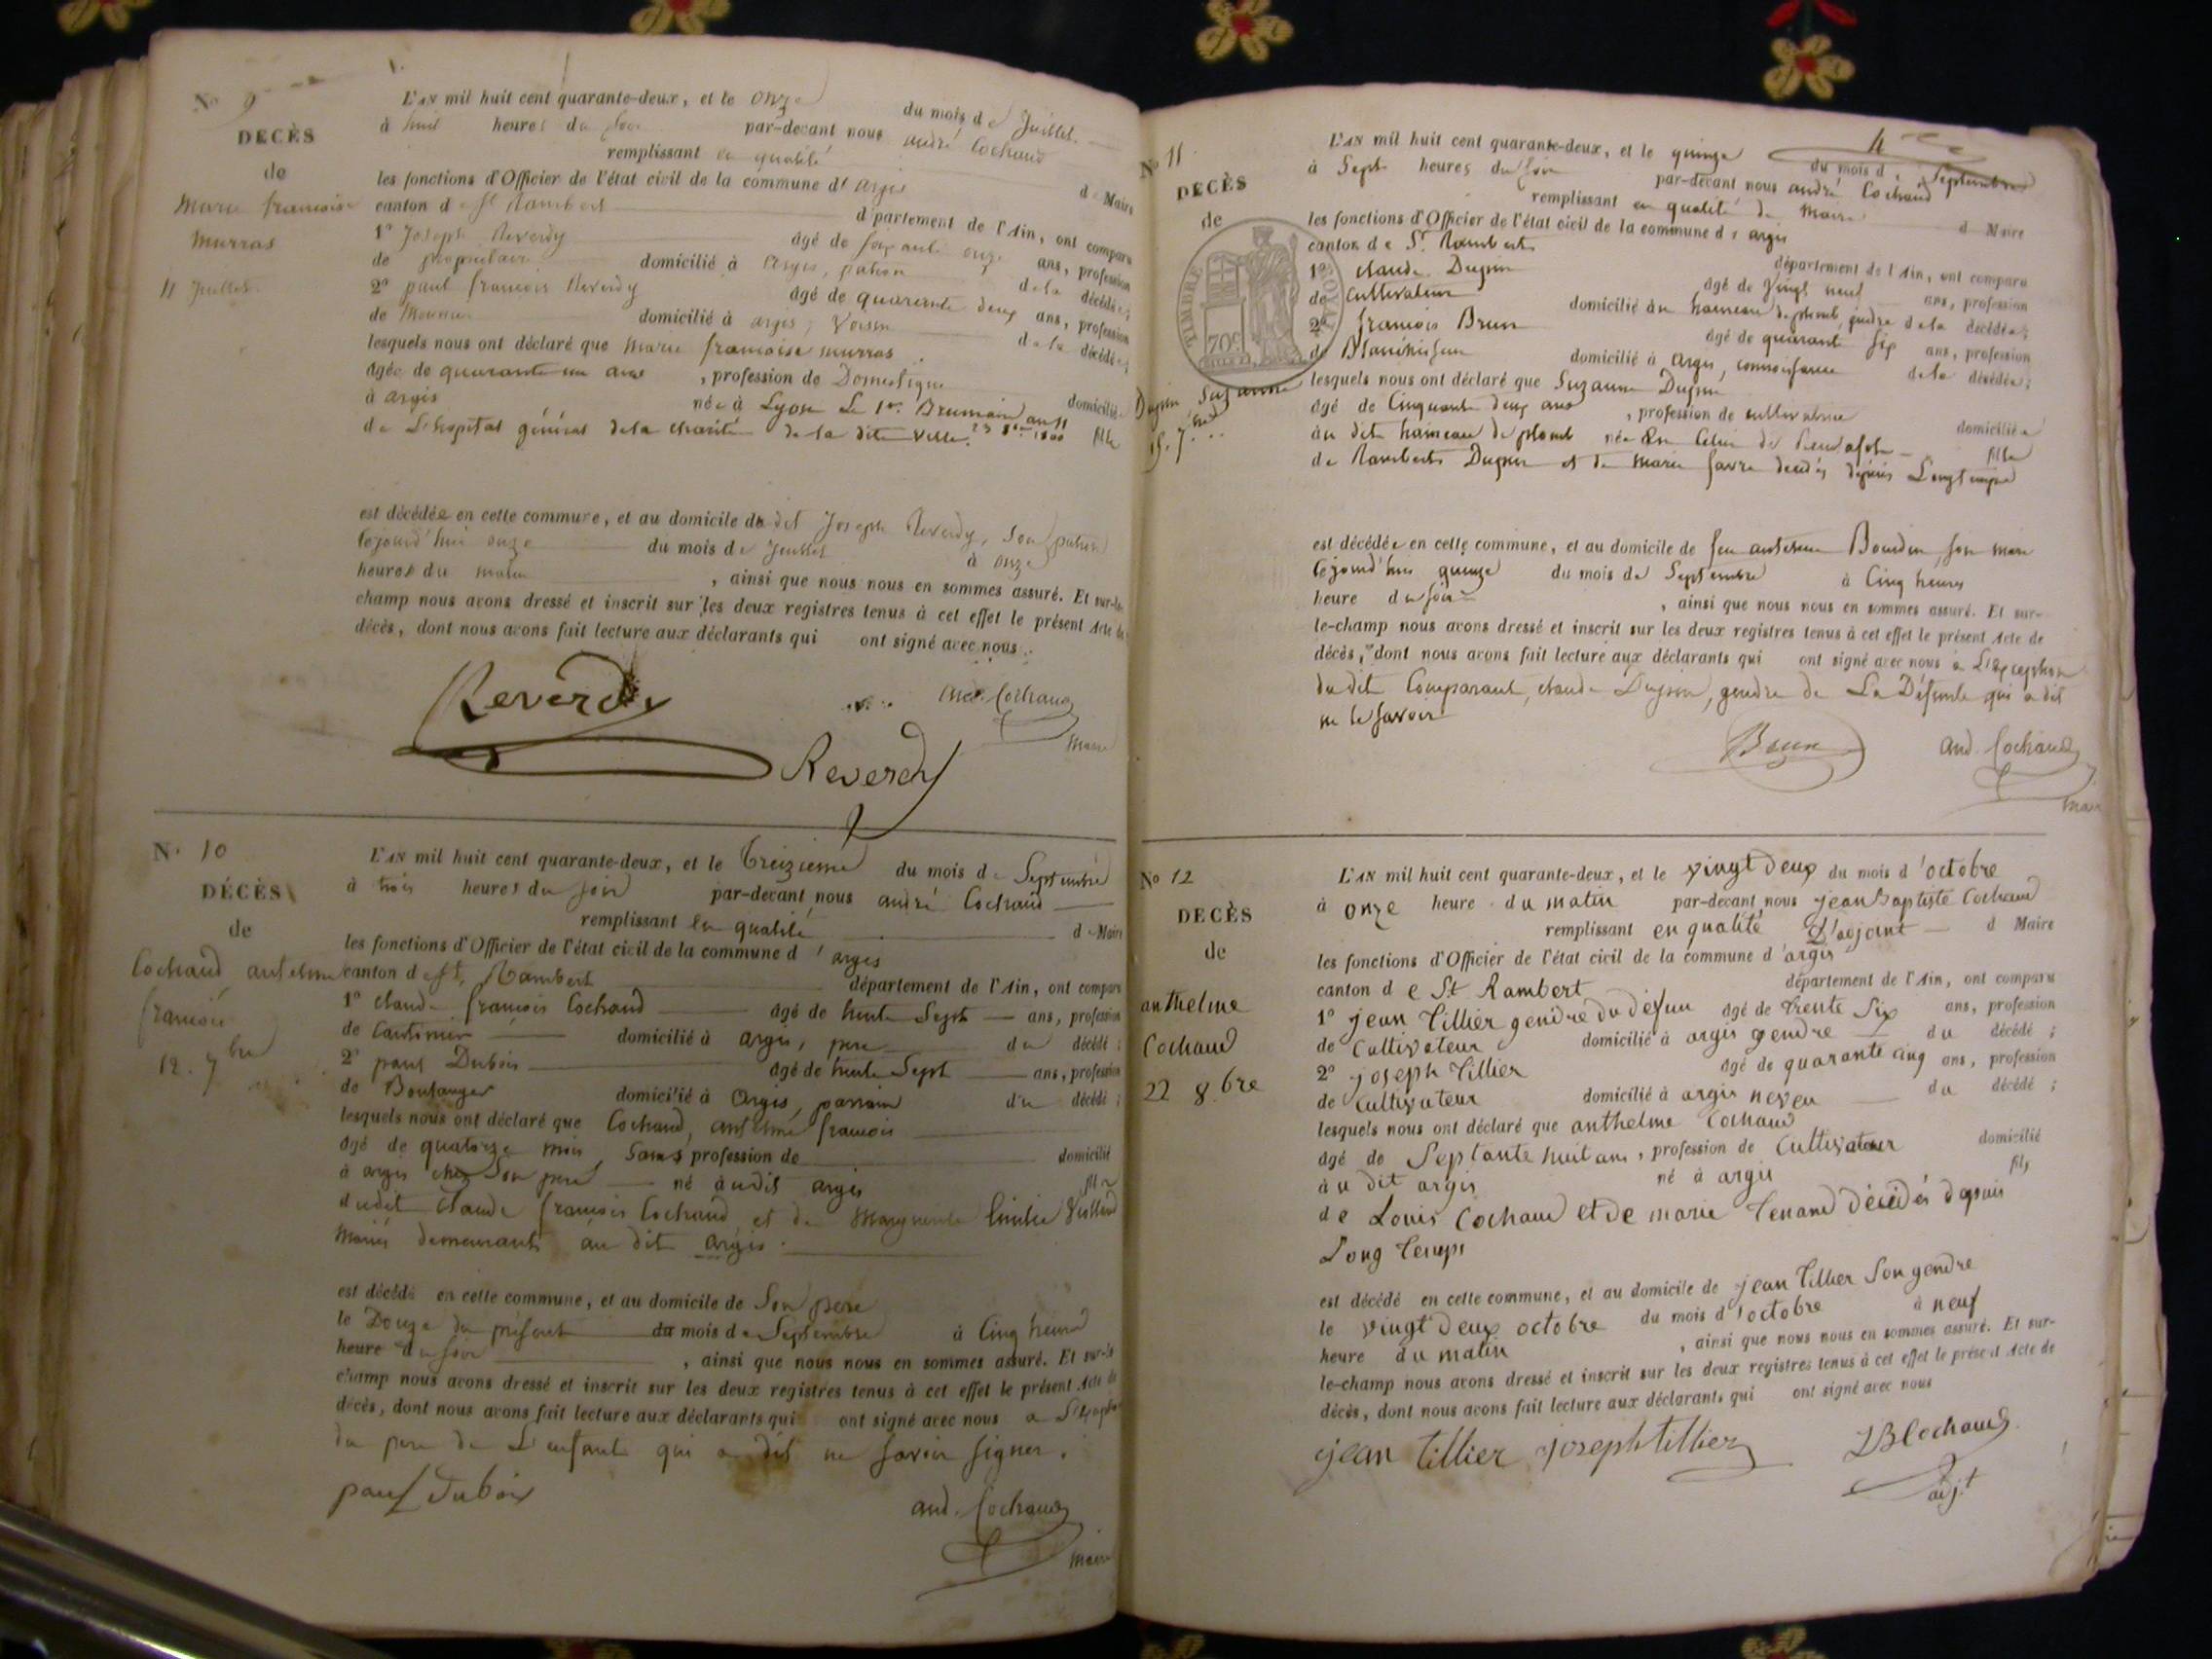 No 9
DECÈS
de
Marie françoise
Murras
11 Juillet
L'AN mil huit cent quarante-deux, et le onze du mois de Juillet
à huit heures du soir par-devant nous andré Cochaud
remplissant en qualité de Maire
les fonctions d'Officier de l'état civil de la commune d'argis
canton de St Rambert département de l'Ain, ont comparu
1° Joseph Reverdy âgé de soixante onze ans, profession
de propriétaire domicilié à Argis, patron de la décédée;
2° paul françois Reverdy âgé de quarante deux ans, profession
de Meunier domicilié à argis, Voisin de la décédée;
lesquels nous ont déclaré que Marie françoise murras
âgée de quarante un ans, profession de Domestique domiciliée
à argis née à Lyon Le 1er Brumaire an 11 fille
de L'hopital général de la charité de la dite ville.
est décédée en cette commune, et au domicile du dit Joseph Reverdy, son patron
cejourd'hui onze du mois de Juillet à onze
heures du matin, ainsi que nous nous en sommes assuré. Et sur-le-
champ nous avons dressé et inscrit sur les deux registres tenus à cet effet le présent Acte de
décès, dont nous avons fait lecture aux déclarants qui ont signé avec nous.
Reverdy
And. Cochaud
Maire
Reverdy
No 10
DÉCÈS
de
Cochaud antelme
françois
12. 7bre
L'AN mil huit cent quarante-deux, et le treizieme du mois de Septembre
à trois heures du soir par-devant nous andré Cochaud
remplissant en qualité de Maire
les fonctions d'Officier de l'état civil de la commune d'argis
canton de St Rambert département de l'Ain, ont comparu
1° claude françois Cochaud âgé de trente Sept ans, profession
de Cantonnier domicilié à argis, pere du décédé;
2° paul Dubois âgé de trente Sept ans, profession
de Boulanger domicilié à Argis, parrain du décédé;
lesquels nous ont déclaré que Cochaud, antelme françois
âgé de quatorze mois, Sans profession de domicilié
à argis chez Son pere né audit argis fils
dudit Claude françois Cochaud et de Marguerite Emilie
Mariés demeurants au dit argis.
est décédé en cette commune, et au domicile de Son pere
le Douze du présent du mois de Septembre à Cinq heures
heure du soir, ainsi que nous nous en sommes assuré. Et sur-le-
champ nous avons dressé et inscrit sur les deux registres tenus à cet effet le présent Acte de
décès, dont nous avons fait lecture aux déclarants qui ont signé avec nous a L'exception
du pere de L'enfant qui a dit ne savoir signer.
paul Dubois
and. Cochaud
Maire
4
No 11
DECÈS
de
Dupin Suzanne
15. 7bre
TIMBRE ROYAL
70c
L'AN mil huit cent quarante-deux, et le quinze du mois de Septembre
à Sept heures du soir par-devant nous andré Cochaud
remplissant en qualité de Maire d Maire
les fonctions d'Officier de l'état civil de la commune d'argis
canton de St Rambert département de l'Ain, ont comparu
1° claude Dupin âgé de vingt neuf ans, profession
de Cultivateur domicilié au hameau de plomb, gendre de la décédée;
2° françois Brun âgé de quarante six ans, profession
de domicilié à Argis, connoissance de la décédée;
lesquels nous ont déclaré que Suzanne Dupin
âgé de Cinquante deux ans, profession de cultivatrice domiciliée
au dit hameau de plomb née fille
de Rambert Dupin et de Marie favre decédés depuis Longtemps
est décédée en cette commune, et au domicile de feu antelme Bourdin son mari
cejourd'hui quinze du mois de Septembre à Cinq heures
heure du soir, ainsi que nous nous en sommes assuré. Et sur-
le-champ nous avons dressé et inscrit sur les deux registres tenus à cet effet le présent Acte de
décès, dont nous avons fait lecture aux déclarants qui ont signé avec nous a L'exception
du dit Comparant, claude Dupin, gendre de La Défunte qui a dit
ne le savoir
Brun
And. Cochaud
Maire
No 12
DECÈS
de
anthelme
Cochaud
22 8bre
L'AN mil huit cent quarante-deux, et le vingt deux du mois d'octobre
à onze heure du matin par-devant nous jean Baptiste Cochaud
remplissant en qualité d'adjoint d Maire
les fonctions d'Officier de l'état civil de la commune d'argis
canton de St Rambert département de l'Ain, ont comparu
1° jean Tillier gendre du défun âgé de trente Six ans, profession
de Cultivateur domicilié à argis gendre du décédé;
2° joseph Tillier âgé de quarante cinq ans, profession
de Cultivateur domicilié à argis neveu du décédé;
lesquels nous ont déclaré que anthelme Cochaud
âgé de Septante huit ans, profession de Cultivateur domicilié
au dit argis né à argis fils
de Louis Cochaud et de marie Tenand décédés depuis
Long Temps
est décédé en cette commune, et au domicile de jean Tillier Son gendre
le vingt Deux octobre du mois d'octobre à neuf
heure du matin, ainsi que nous nous en sommes assuré. Et sur-
le-champ nous avons dressé et inscrit sur les deux registres tenus à cet effet le présent Acte de
décès, dont nous avons fait lecture aux déclarants qui ont signé avec nous
jean Tillier joseph tillier JB Cochaud
adjt